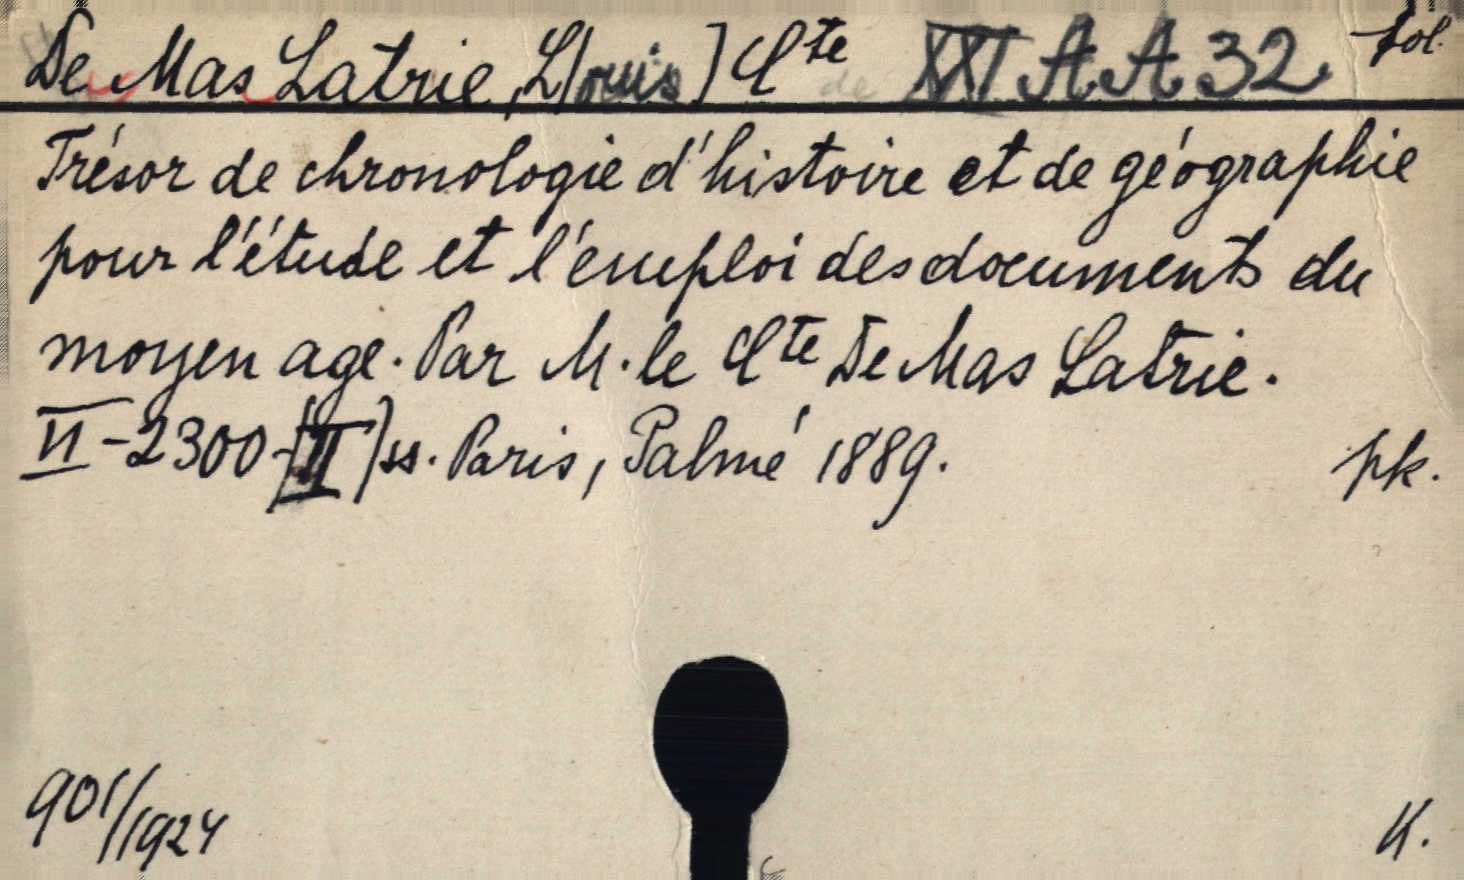 De Mas Latrie, L[ouis] Cte de XXI A A 32. fol.
Trésor de chronologie d'histoire et de géographie
pour l'étude et l'emploi des documents du
moyen age. Par M. le Cte De Mas Latrie.
VI-2300-[II] ss. Paris, Palmé 1889. pk.
901/1924 K.